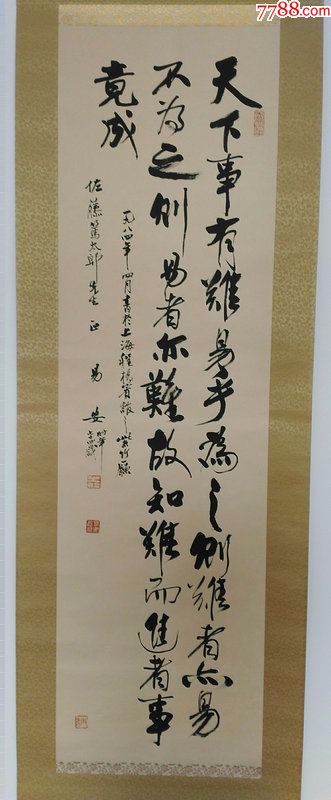 7788.com
天下事有难易乎為之则难者亦易
不為之则易者亦難故知难而進者事
竟成
一九八四年四月書於上海
佐藤篤太郎先生正 易安